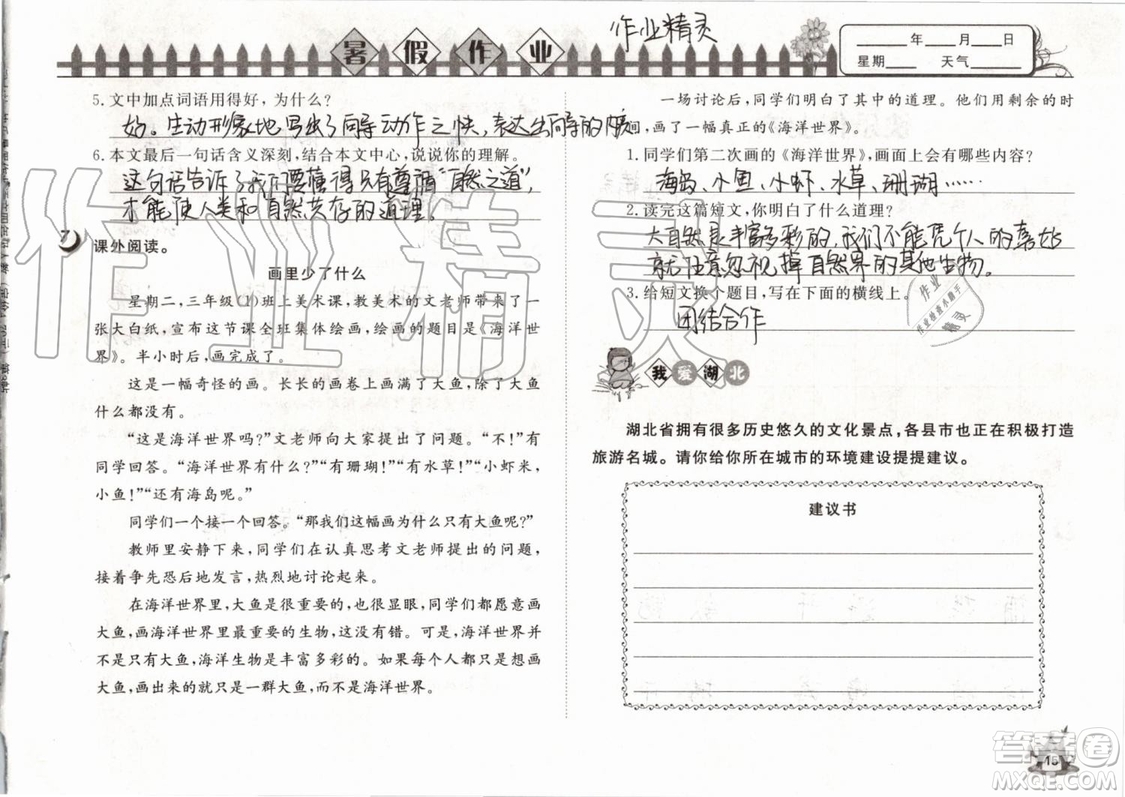 暑假作业
作业精灵
____年____月____日
星期____ 天气____
5. 文中加点词语用得好，为什么？
妙。生动形象地写出了向导动作之快，表达出向导的
6. 本文最后一句话含义深刻，结合本文中心，说说你的理解。
这句话告诉了我们要懂得只有尊循“自然之道”，
才能使人类和自然共存的道理。
7 课外阅读。
画里少了什么
星期二，三年级(1)班上美术课，教美术的文老师带来了一
张大白纸，宣布这节课全班集体绘画，绘画的题目是《海洋世
界》。半小时后，画完成了。
这是一幅奇怪的画。长长的画卷上画满了大鱼，除了大鱼
什么都没有。
“这是海洋世界吗？”文老师向大家提出了问题。“不！”有
同学回答。“海洋世界有什么？”“有珊瑚！”“有水草！”“小虾米，
小鱼！”“还有海岛呢。”
同学们一个接一个回答。“那我们这幅画为什么只有大鱼呢？”
教师里安静下来，同学们在认真思考文老师提出的问题，
接着争先恐后地发言，热烈地讨论起来。
在海洋世界里，大鱼是很重要的，也很显眼，同学们都愿意画
大鱼，画海洋世界里最重要的生物，这没有错。可是，海洋世界并
不是只有大鱼，海洋生物是丰富多彩的。如果每个人都只画
大鱼，画出来的就只是一群大鱼，而不是海洋世界。
一场讨论后，同学们明白了其中的道理。他们用剩余的时
间，画了一幅真正的《海洋世界》。
1. 同学们第二次画的《海洋世界》，画面上会有哪些内容？
海岛、小鱼、小虾、水草、珊瑚……
2. 读完这篇短文，你明白了什么道理？
大自然是丰富多彩的，我们不能凭个人的喜好
就任意忽视掉自然界的其他生物。
3. 给短文换个题目，写在下面的横线上。
团结合作
我爱湖北
湖北省拥有很多历史悠久的文化景点，各县市也正在积极打造
旅游名城。请你给你所在城市的环境建设提提建议。
建议书
15
作业精灵
答案圈
MXQE.COM